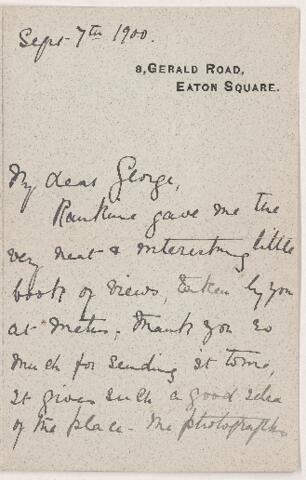 Sept 7th 1900.
8, GERALD ROAD,
EATON SQUARE.
My dear George,
Rankine gave me the
very neat & interesting little
book of views, taken by you
at Metis, Thank you so
much for sending it to me,
It gives such a good idea
of the place - The photographs